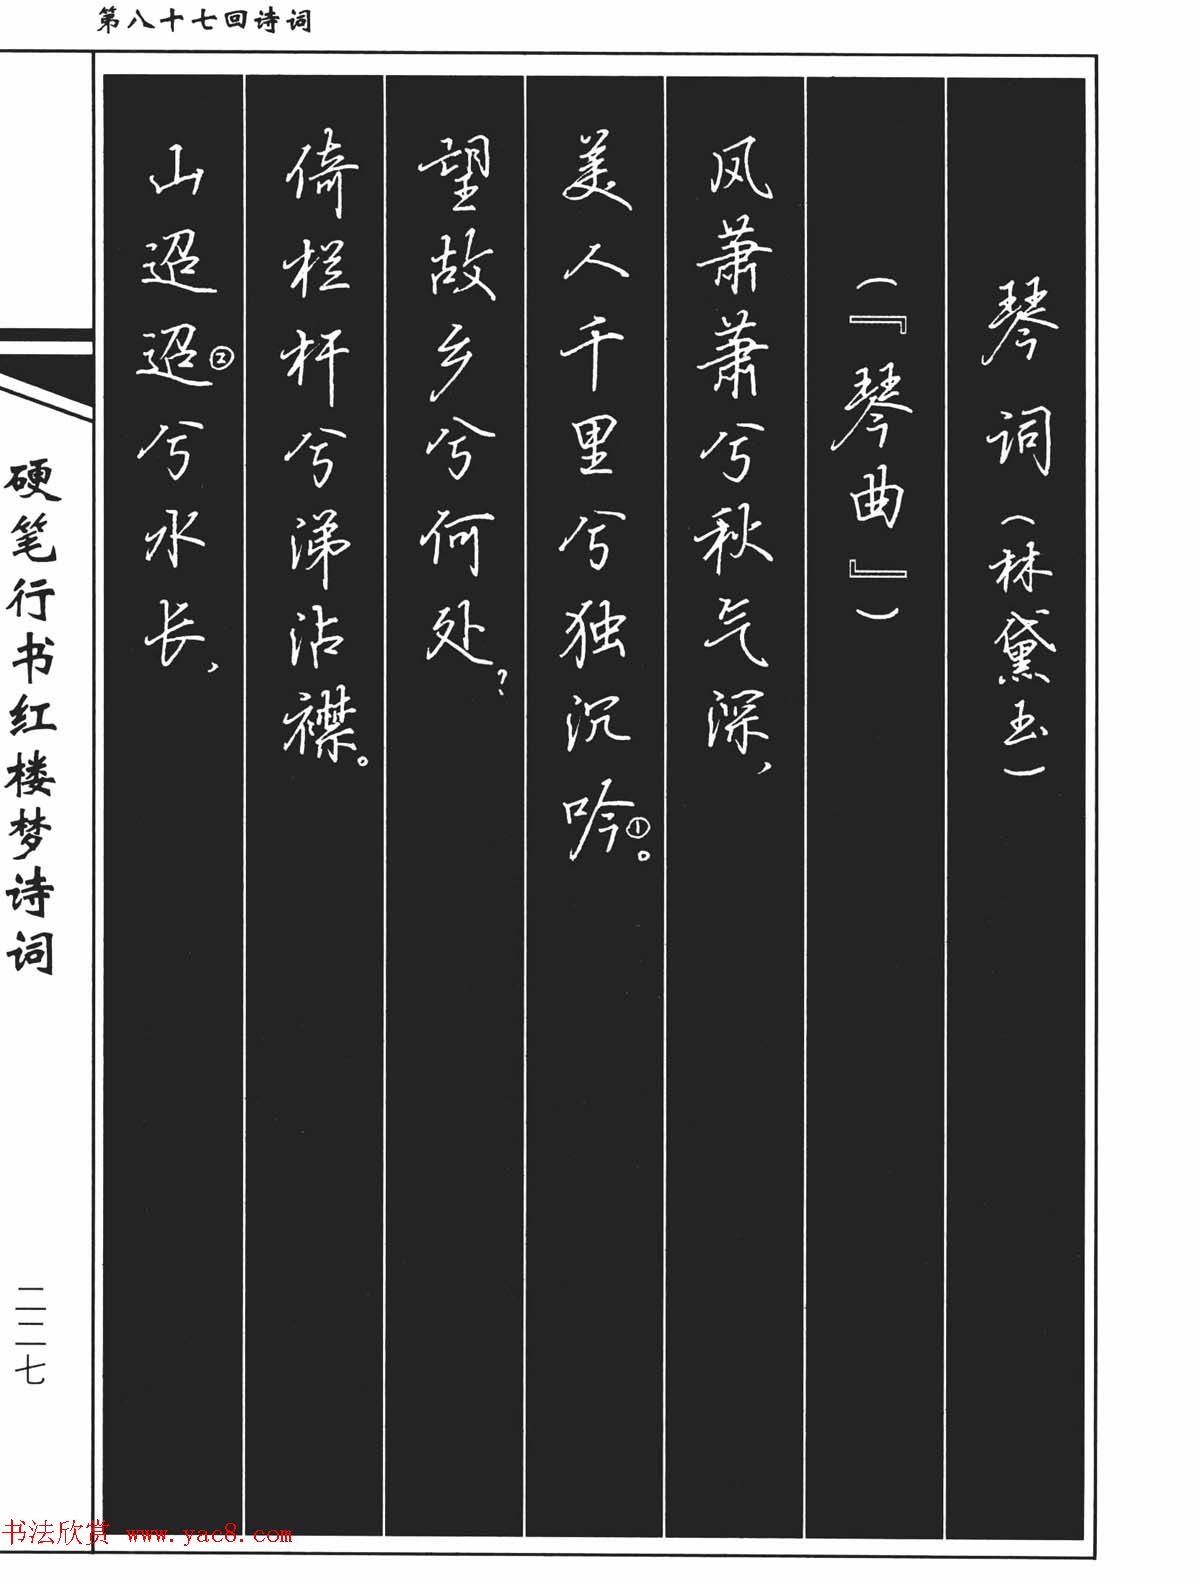 第八十七回诗词
琴词(林黛玉)
(『琴曲』)
风萧萧兮秋气深,
美人千里兮独沉吟①。
望故乡兮何处?
倚栏杆兮涕沾襟。
山迢迢②兮水长,
硬笔行书红楼梦诗词
二二七
书法欣赏 www.yac8.com